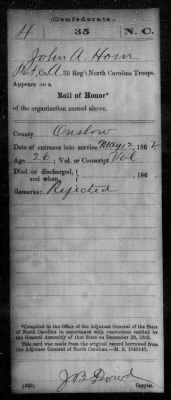 (Confederate.)
H 35 N. C.
John A. Horn
Pvt, Co. A, 35 Reg't North Carolina Troops.
Appears on a
Roll of Honor*
of the organization named above.
County Onslow
Date of entrance into service May 12, 1862
Age 26; Vol. or Conscript Vol
Died or discharged, and when, 186
Remarks: Rejected
*Compiled in the Office of the Adjutant General of the State
of North Carolina in accordance with resolutions ratified by
the General Assembly of that State on December 20, 1862.
This card was made from the original record borrowed from
the Adjutant General of North Carolina.—M. S.
J. B. Dowd
Copyist.